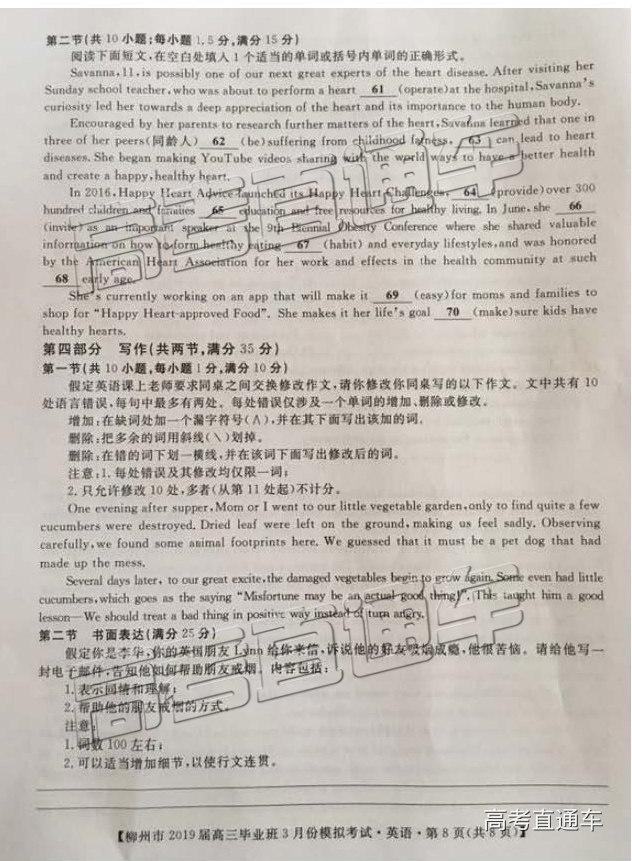 第二节(共 10 小题;每小题 1.5 分,满分 15 分)
阅读下面短文,在空白处填入 1 个适当的单词或括号内单词的正确形式。
Savanna, 11, is possibly one of our next great experts of the heart disease. After visiting her
Sunday school teacher, who was about to perform a heart 61 (operate)at the hospital, Savanna's
curiosity led her towards a deep appreciation of the heart and its importance to the human body.
Encouraged by her parents to research further matters of the heart, Savanna learned that one in
three of her peers(同龄人) 62 (be)suffering from childhood fatness, 63 can lead to heart
diseases. She began making YouTube videos sharing with the world ways to have a better health
and create a happy, healthy heart.
In 2016, Happy Heart Advice launched its Happy Heart Challenges, 64 (provide)over 300
hundred children and families 65 education and free resources for healthy living. In June, she 66
(invite) as an important speaker at the 9th Biennial Obesity Conference where she shared valuable
information on how to form healthy eating 67 (habit) and everyday lifestyles, and was honored
by the American Heart Association for her work and effects in the health community at such
68 early age.
She's currently working on an app that will make it 69 (easy)for moms and families to
shop for "Happy Heart-approved Food". She makes it her life's goal 70 (make)sure kids have
healthy hearts.
第四部分 写作(共两节,满分 35 分)
第一节(共 10 小题,每小题 1 分,满分 10 分)
假定英语课上老师要求同桌之间交换修改作文,请你修改你同桌写的以下作文。文中共有 10
处语言错误,每句中最多有两处。每处错误仅涉及一个单词的增加、删除或修改。
增加:在缺词处加一个漏字符号(∧),并在其下面写出该加的词。
删除:把多余的词用斜线(\)划掉。
删除:在错的词下划一横线,并在该词下面写出修改后的词。
注意:1. 每处错误及其修改均仅限一词;
2. 只允许修改 10 处,多者(从第 11 处起)不计分。
One evening after supper, Mom or I went to our little vegetable garden, only to find quite a few
cucumbers were destroyed. Dried leaf were left on the ground, making us feel sadly. Observing
carefully, we found some animal footprints here. We guessed that it must be a pet dog that had
made up the mess.
Several days later, to our great excite, the damaged vegetables begin to grow again. Some even had little
cucumbers, which goes as the saying "Misfortune may be an actual good thing!". This taught him a good
lesson—We should treat a bad thing in positive way instead of turn angry.
第二节 书面表达(满分 25 分)
假定你是李华,你的英国朋友 Lynn 给你来信,诉说他的好友吸烟成瘾,他很苦恼。请给他写一
封电子邮件,告知他如何帮助朋友戒烟。内容包括:
1. 表示回绪和理解;
2. 帮助他的朋友戒烟的方式。
注意:
1. 词数 100 左右;
2. 可以适当增加细节,以使行文连贯。
【柳州市 2019 届高三毕业班 3 月份模拟考试·英语·第 8 页(共 8 页)】
高考直通车
高考直通车
高考直通车